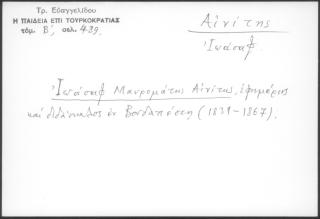 Τρ. Εὐαγγελίδου
Η ΠΑΙΔΕΙΑ ΕΠΙ ΤΟΥΡΚΟΚΡΑΤΙΑΣ
τόμ. Β', σελ. 439.
Αἰνίτης
Ἰωάσαφ
Ἰωάσαφ Μαυρομάτης Αἰνίτης, ἐφημέριος
καὶ διδάσκαλος ἐν Βουδαπέστῃ (1839-1867).